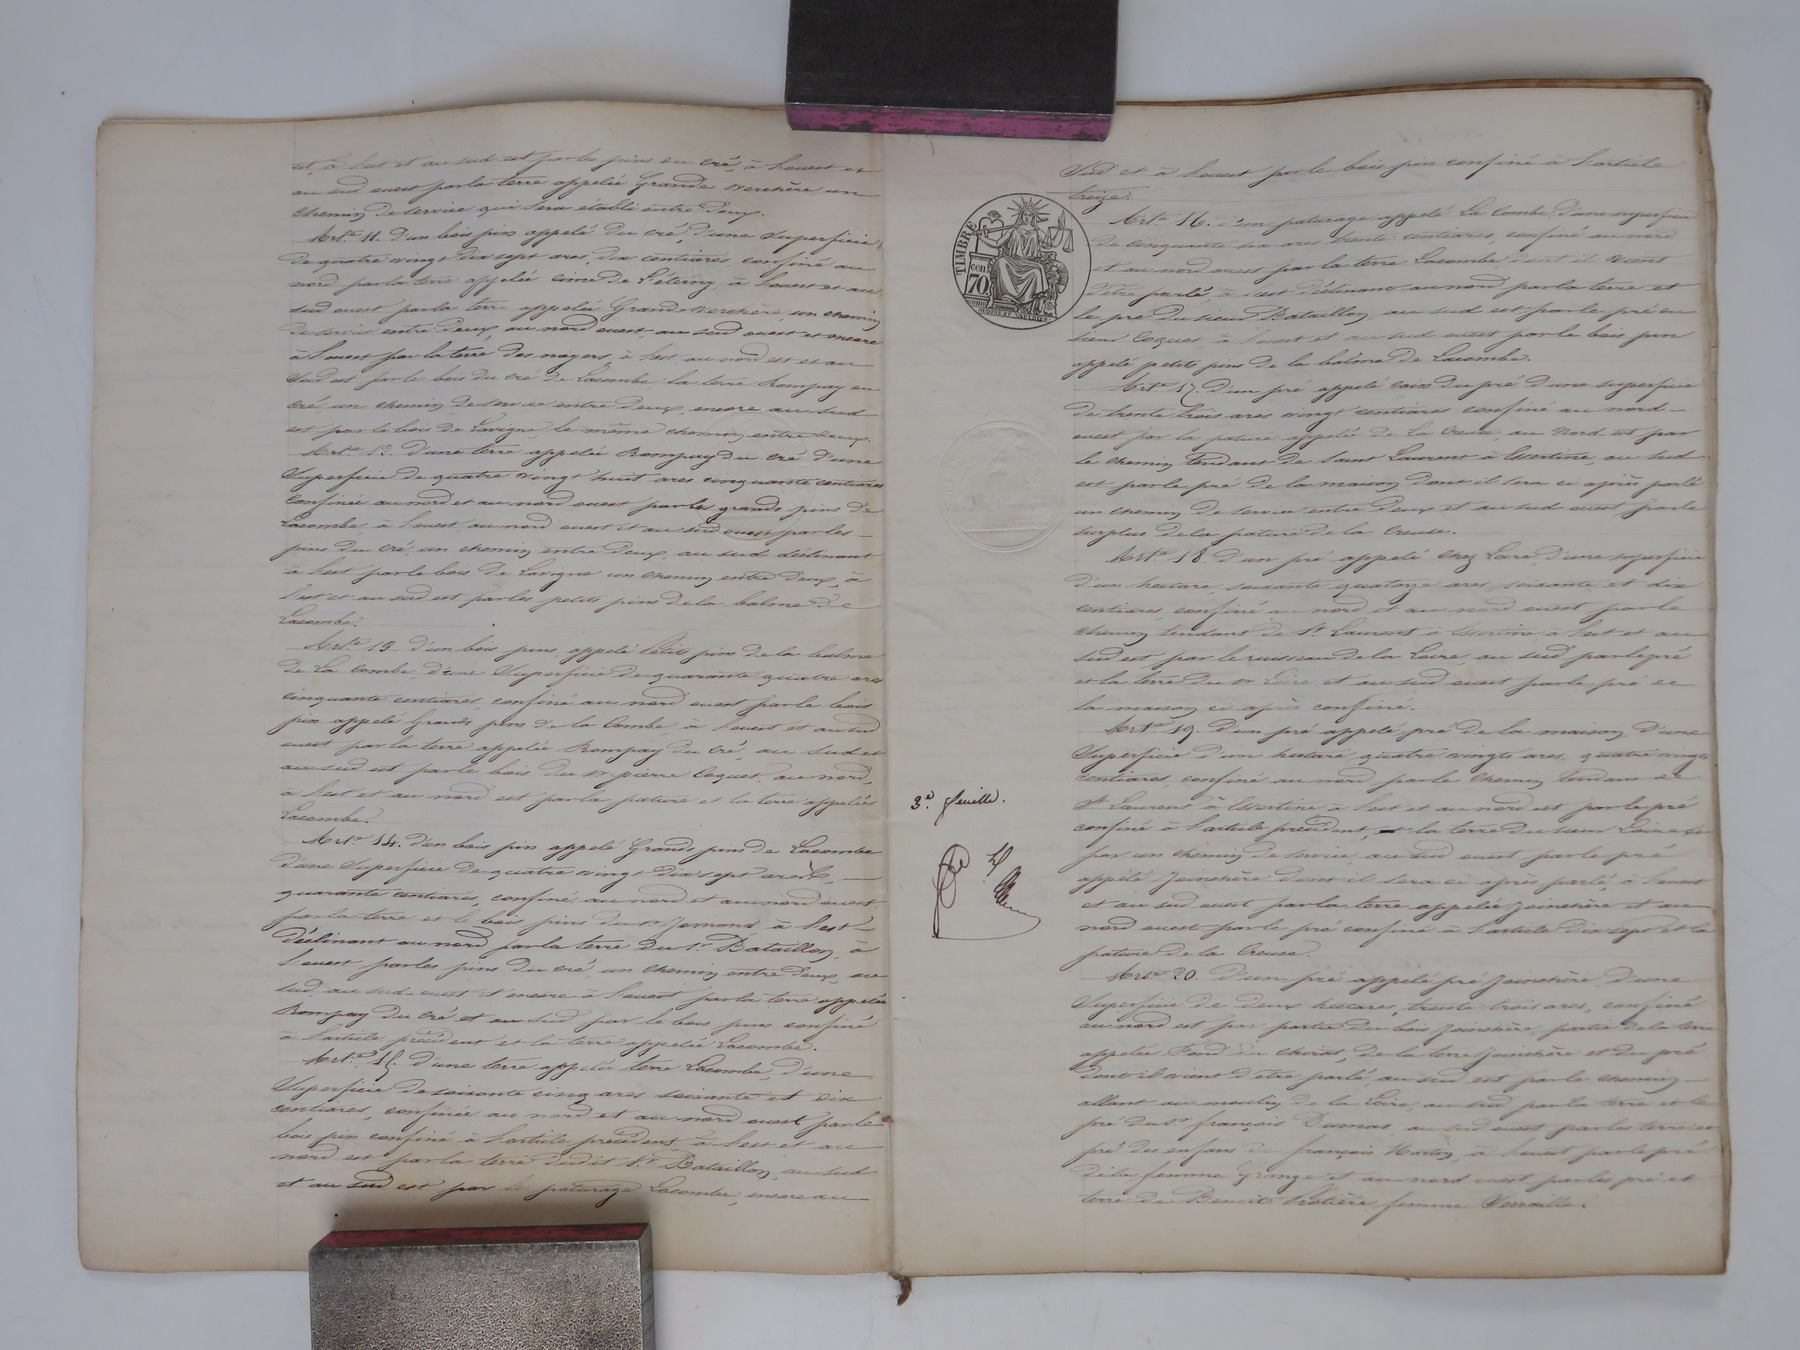 est, à l'est et au sud est par les pins du cré, à l'ouest et
au sud ouest par la terre appelée Grande verchère un
chemin de service qui sera établi entre deux.
Art.e 11. D'un bois pin appelé du cré, d'une superficie
de quatre vingt dix sept ares, dix centiares confiné au
nord par la terre appelée cime de l'éterny, à l'ouest et au
sud ouest par la terre appelée Grande verchère, un chemin
de service entre deux, au nord ouest, au sud ouest et encore
à l'ouest par la terre des noyers, à l'est au nord est et au
sud est par le bois du cré de Lacombe la terre Rompay du
cré un chemin de service entre deux, encore au sud
est par le bois de Lavigne, le même chemin entre deux.
Art.e 12. D'une terre appelée Rompay du cré d'une
superficie de quatre vingt huit ares cinquante centiares
confinée au nord et au nord ouest par les grands pins de
Lacombe, à l'ouest, au nord ouest et au sud ouest par les
pins du cré, un chemin entre deux, au sud déclinant
à l'est par le bois de Lavigne un chemin entre deux, à
l'est et au sud est par les petits pins de la balme de
Lacombe.
Art.e 13. D'un bois pins appelé Petits pins de la balme
de La Combe, d'une superficie de quarante quatre ares
cinquante centiares, confiné au nord ouest par le bois
pin appelé Grands pins de la Combe, à l'ouest et au sud
ouest par la terre appelée Rompay du cré, au sud et
au sud est par le bois du Sr pierre Coquet, au nord,
à l'est et au nord est par la pature et la terre appelées
Lacombe.
Art.e 14. D'un bois pin appelé Grands pins de Lacombe
d'une superficie de quatre vingt dix sept ares,
quarante centiares, confiné au nord et au nord ouest
par la terre et le bois pins du Sr Jemond, à l'est
déclinant au nord par la terre du Sr Bataillon, à
l'ouest par les pins du cré, un chemin entre deux, au
sud, au sud-ouest et encore à l'ouest par la terre appelée
Rompay du cré et au sud par le bois pins confiné
à l'article précédent et la terre appelée Lacombe.
Art.e 15. D'une terre appelée terre Lacombe, d'une
superficie de soixante cinq ares soixante et dix
centiares, confinée au nord et au nord ouest par le
bois pin confiné à l'article précédent à l'est et au
nord est par la terre dudit Sr Bataillon, au sud
et au sud est par le paturage Lacombe, encore au
sud et à l'ouest par le bois pin confiné à l'article
treize.
TIMBRE
cen
70
Art.e 16. d'un paturage appelé La Combe, d'une superficie
de cinquante six ares trente centiares, confiné au nord
et au nord ouest par la terre Lacombe, dont il vient
d'être parlé, à l'est déclinant au nord par la terre et
le pré du sieur Bataillon, au sud est par le pré du
sieur Coquet, à l'ouest et au sud ouest par le bois pin
appelé petits pins de la balme de Lacombe.
Art.e 17. D'un pré appelé coin du pré d'une superficie
de trente trois ares vingt centiares confiné au nord-
ouest par la pature appelée de la Creuse, au nord-est par
le chemin tendant de Saint Laurent à Essertine, au sud
est par le pré de la maison dont il sera ci après parlé
un chemin de service entre deux et au sud ouest, par le
surplus de la pature de la Creuse.
Art.e 18. D'un pré appelé Chez Loire, d'une superficie
d'un hectare, soixante quatorze ares, soixante et dix
centiares, confiné au nord et au nord ouest par le
chemin tendant de St Laurent à Essertine à l'est et au
sud est par le ruisseau de la Loire, au sud par le pré
et la terre du Sr Loire et au sud ouest par le pré de
la maison ci après confiné.
Art.e 19. D'un pré appelé pré de la maison, d'une
superficie d'un hectare, quatre vingts ares, quatre vingt
centiares, confiné au nord par le chemin tendant de
St Laurent à Essertine à l'est et au nord est par le pré
3e. feuille.
confiné à l'article précédent, et la terre du sieur Loire
par un chemin de service, au sud ouest par le pré
appelé Joinchère dont il sera ci après parlé, à l'ouest
et au sud ouest par la terre appelée Joinchère et au
nord ouest par le pré confiné à l'article dix sept et la
pature de la Creuse.
Art.e 20. D'un pré appelé pré Joinchère, d'une
superficie de deux hectares, trente trois ares, confiné
au nord est par partie du bois Joinchère, partie de la terre
appelée Fond du choirat, de la terre Joinchère et du pré
dont il vient d'être parlé, au sud est par le chemin
allant au moulin de la Loire, au sud par la terre et le
pré du Sr françois Dumas, au sud ouest par les terre et
pré des enfans de françois Morlin, à l'ouest par le pré
de la femme Grange et au nord ouest par les pré et
terre de Benoit femme Verraille.